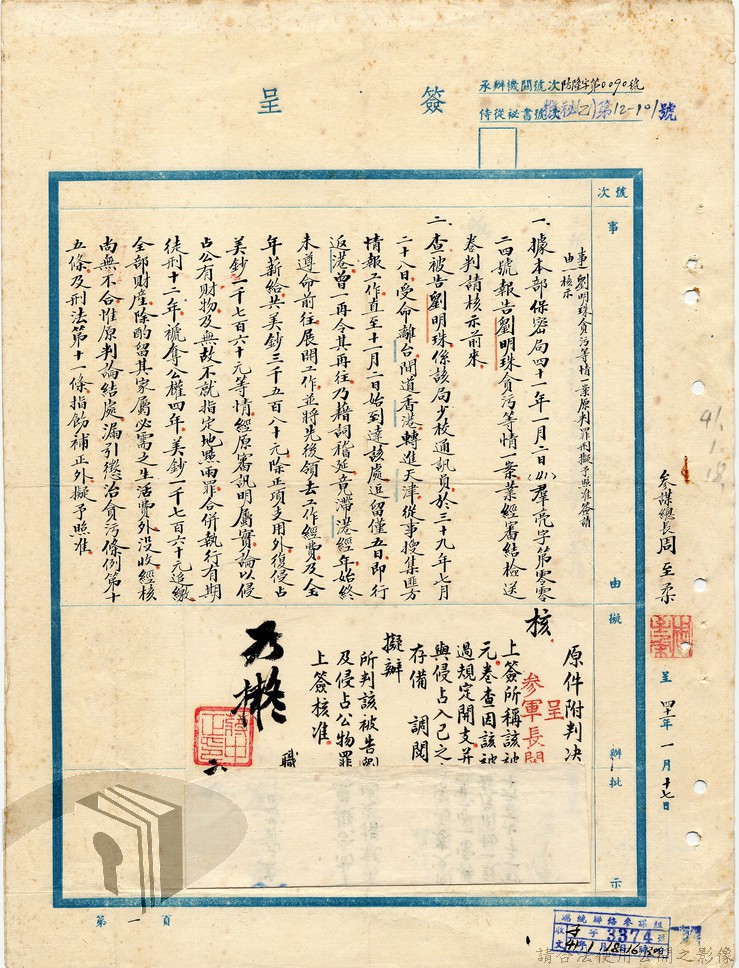 簽呈
承辦機關號次防隆字第0090號
侍從祕書號次機祕(乙)第12-101號
號次
事由擬辦批示
事由 劉明珠貪污等情一案原判罪刑擬予照准簽請核示
一、據本部保密局四十一年一月二日(41)羣亮字第零零
二四號報告劉明珠貪污等情一案業經審結檢送
卷判請核示前來。
二、查被告劉明珠係該局少校通訊員於三十九年七月
二十八日受命離台間道香港轉進天津從事搜集匪方
情報工作直至十一月二日始到達該處逗留僅五日即行
返港曾一再令其再往乃藉詞稽延竟滯港經年始終
未遵命前往展開工作並將先後領去工作經費及全
年薪給共美鈔三千五百八十元除正項支用外復侵占
美鈔一千七百六十元等情經原審訊明屬實論以侵
占公有財物及無故不就指定地點兩罪合併執行有期
徒刑十二年褫奪公權四年美鈔一千七百六十元追繳
全部財產除酌留其家屬必需之生活費外沒收經核
尚無不合惟原判論結處漏引懲治貪污條例第十
五條及刑法第十一條指飭補正外擬予照准
參謀總長周至柔
呈 四十一年一月十七日
41.1.18.
原件附判决
呈
參軍長閱
核
上簽所稱該被
元卷查因該被
過規定開支并
與侵占入己之
存備 調閱
擬辦
所判該被告
及侵占公物罪
上簽核准。
職
第一頁
收文 字3374號
41年1月18日16時
請合法使用公開之影像